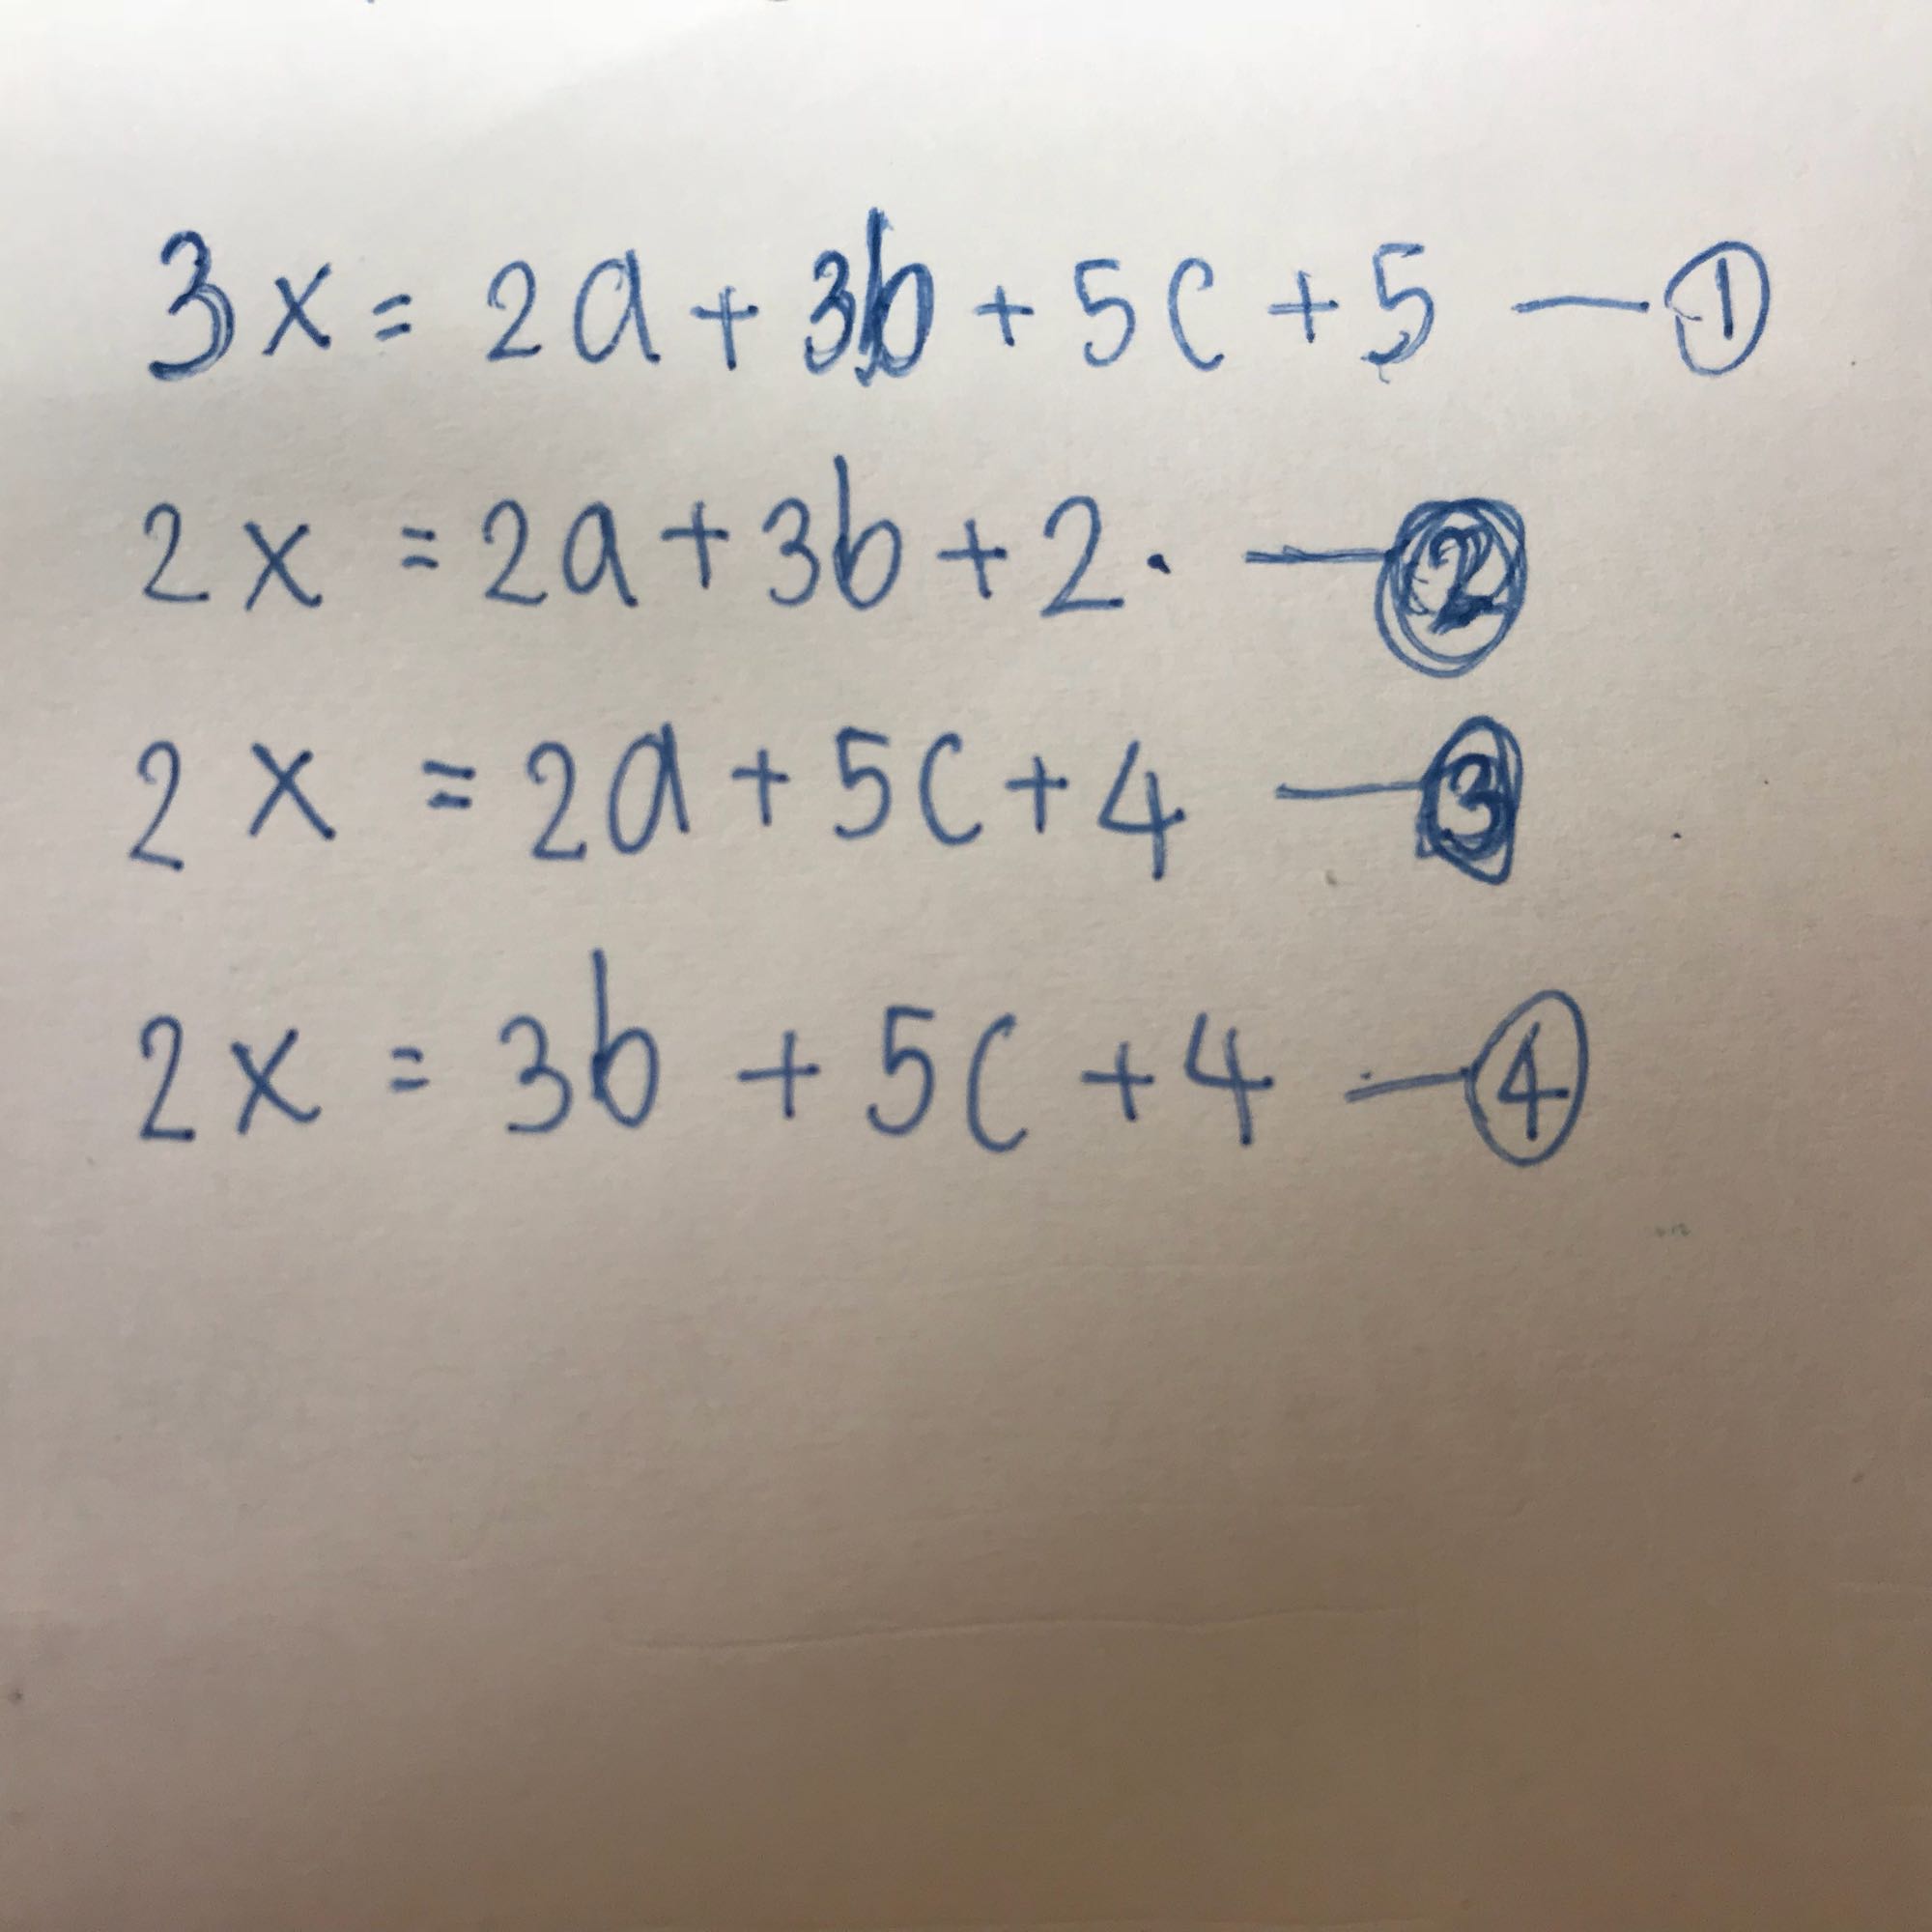 3x = 2a + 3b + 5c + 5 — ①
2x = 2a + 3b + 2. — ②
2x = 2a + 5c + 4 — ③
2x = 3b + 5c + 4 — ④